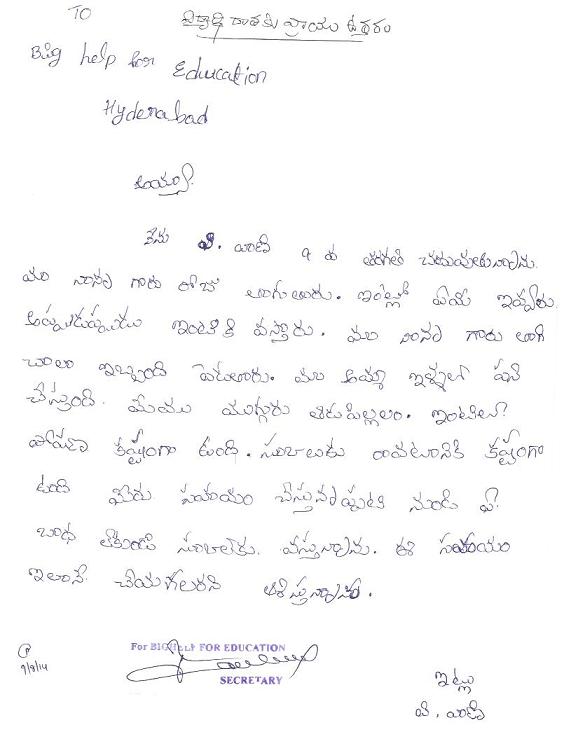 TO
విద్యార్థి రాతకు వ్రాయు ఉత్తరం
Big help for Education
Hyderabad
అయ్యా.
నేను వి. వాణి 9 వ తరగతి చదువుతున్నాను.
మా నాన్న గారు రోజు త్రాగుతారు. ఇంట్లో ఏమి ఇవ్వరు.
అప్పుడప్పుడు ఇంటికి వస్తారు. మా నాన్న గారు త్రాగి
చాలా ఇబ్బంది పెడుతారు. మా అమ్మ ఇళ్ళలో పని
చేస్తుంది. మేము ముగ్గురు ఆడపిల్లలం. ఇంటిలో
పోషణ కష్టంగా ఉంది. స్కూలుకు రావటానికి కష్టంగా
ఉంది మీరు సహాయం చేస్తున్నప్పటి నుండి ఏ
బాధ లేకుండా స్కూలుకు వస్తున్నాను. ఈ సహాయం
ఇలానే చేయగలరని ఆశిస్తున్నాను.
For BIGHELP FOR EDUCATION
SECRETARY
9/9/14
ఇట్లు
వి. వాణి